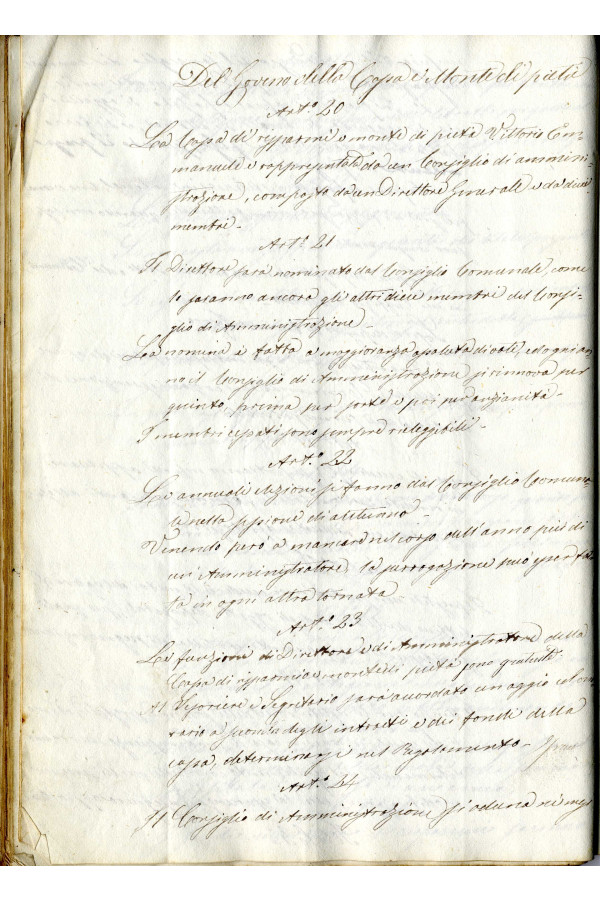 Del Governo della Cassa e Monte di pietà
Art.º 20
La Cassa di risparmi e monte di pietà Vittorio Em-
manuele è rappresentata da un Consiglio di ammini-
strazione, composto da un Direttore Generale e da dieci
membri.
Art.º 21
Il Direttore sarà nominato dal Consiglio Comunale, come
lo saranno ancora gli altri dieci membri del Consi-
glio di Amministrazione.
La nomina è fatta a maggioranza assoluta di voti, ed ogni an-
no il Consiglio di Amministrazione si rinnova per
quinto, prima per sorte e poi per anzianità.
I membri cessati sono sempre rieleggibili.
Art.º 22
Le annuali elezioni si fanno dal Consiglio Comuna-
le nella sessione di autunno.
Venendo però a mancare nel corso dell'anno più di
un Amministratore la surrogazione può esser fat-
ta in ogni altra tornata.
Art.º 23
Le funzioni di Direttore e di Amministratore della
Cassa di risparmio e monte di pietà sono gratuite.
Al Tesoriere e Segretario sarà accordato un aggio
a degli interessi e dei fondi della
cassa, determinarsi nel Regolamento.
Art.º 24
Il Consiglio di Amministrazione si aduna ne' mesi